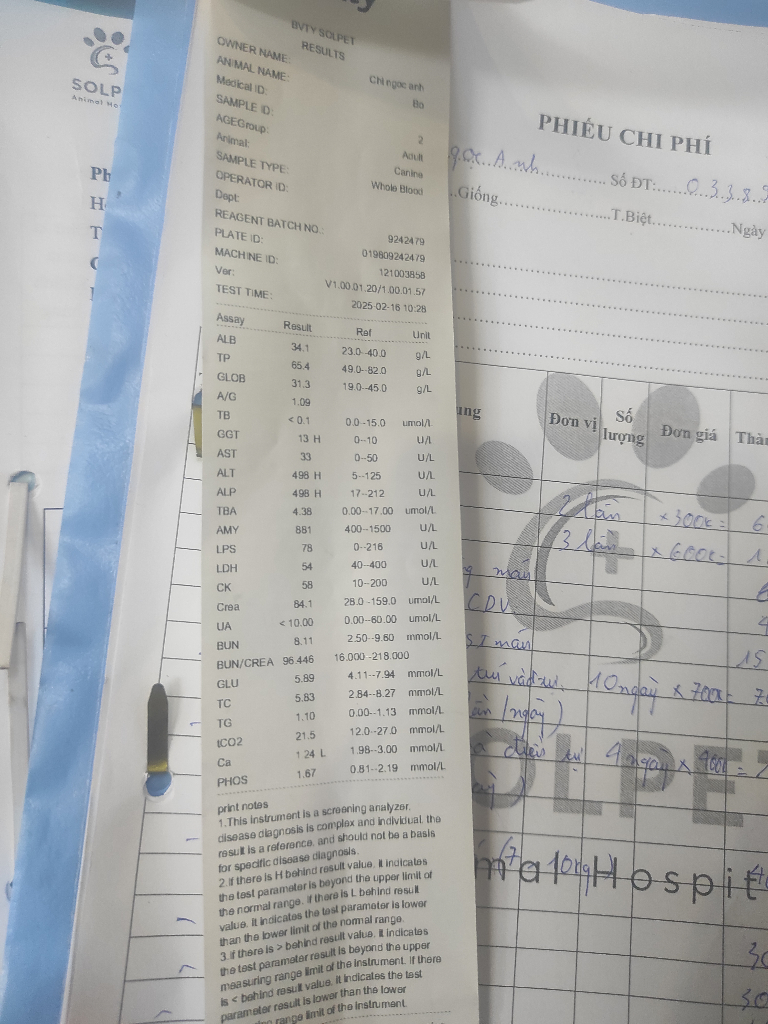 SOLP
Animal Ho
BVTY SOLPET
RESULTS
OWNER NAME: Chi ngoc anh
ANIMAL NAME: Bo
Medical ID:
SAMPLE ID: 2
AGEGroup: Adult
Animal: Canine
SAMPLE TYPE: Whole Blood
OPERATOR ID:
Dept:
REAGENT BATCH NO.: 9242479
PLATE ID: 019809242479
MACHINE ID: 121003858
Ver: V1.00.01.20/1.00.01.57
TEST TIME: 2025-02-16 10:28
Assay Result Ref Unit
ALB 34.1 23.0--40.0 g/L
TP 65.4 49.0--82.0 g/L
GLOB 31.3 19.0--45.0 g/L
A/G 1.09
TB < 0.1 0.0--15.0 umol/L
GGT 13 H 0--10 U/L
AST 33 0--50 U/L
ALT 498 H 5--125 U/L
ALP 498 H 17--212 U/L
TBA 4.38 0.00--17.00 umol/L
AMY 881 400--1500 U/L
LPS 78 0--216 U/L
LDH 54 40--400 U/L
CK 58 10--200 U/L
Crea 84.1 28.0--159.0 umol/L
UA < 10.00 0.00--60.00 umol/L
BUN 8.11 2.50--9.60 mmol/L
BUN/CREA 96.446 16.000 -218.000
GLU 5.89 4.11--7.94 mmol/L
TC 5.83 2.84--8.27 mmol/L
TG 1.10 0.00--1.13 mmol/L
tCO2 21.5 12.0--27.0 mmol/L
Ca 1.24 L 1.98--3.00 mmol/L
PHOS 1.67 0.81--2.19 mmol/L
print notes
1.This instrument is a screening analyzer.
disease diagnosis is complex and individual. the
result is a reference, and should not be a basis
for specific disease diagnosis.
2. if there is H behind result value. it indicates
the test parameter is beyond the upper limit of
the normal range. if there is L behind result
value. it indicates the test parameter is lower
than the lower limit of the normal range.
3.if there is > behind result value. it indicates
the test parameter result is beyond the upper
measuring range limit of the instrument. if there
is < behind result value. it indicates the test
parameter result is lower than the lower
range limit of the instrument.
PHIẾU CHI PHÍ
gọc Anh Số ĐT: 0338
Giống T.Biệt Ngày
Đơn vị Số lượng Đơn giá Thàn
2 lần ×300k= 6
3 lần ×600k= 1
máu
CDV
máu
15
10 ngày × 700k= 7
/ngày)
4 ngày ×
OLPE
mal Hospit